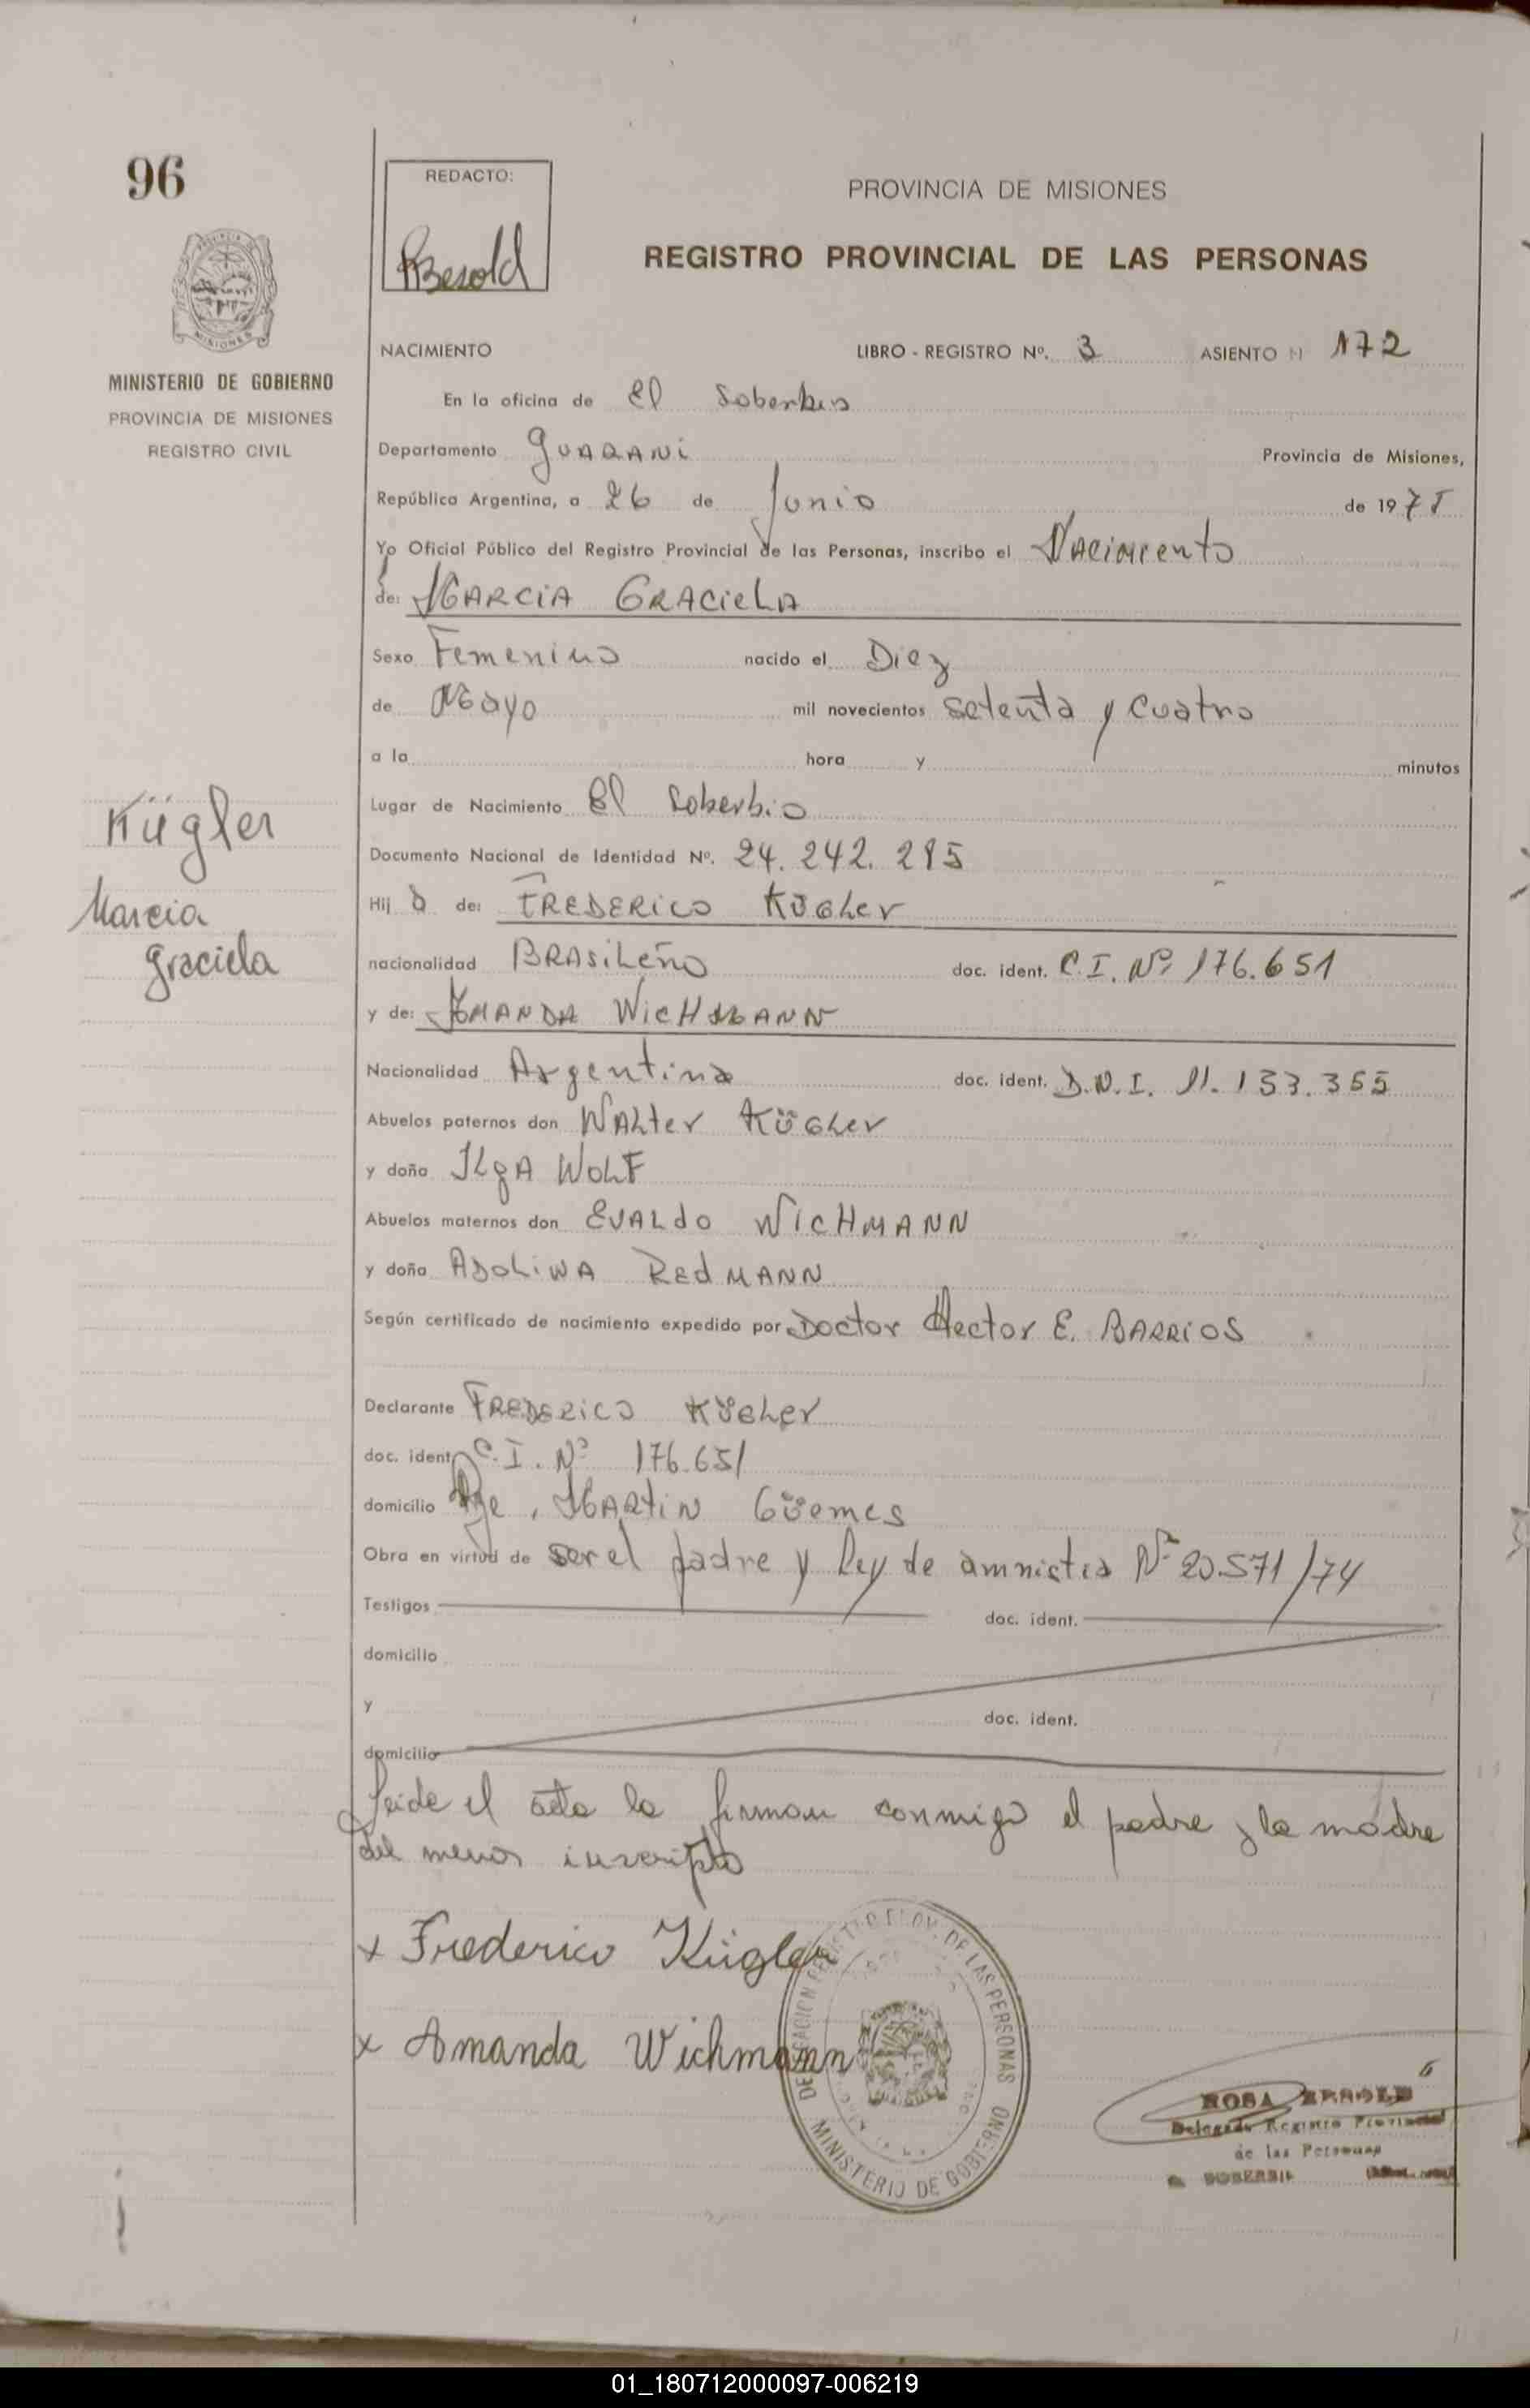 96
REDACTO:
Besold
PROVINCIA DE MISIONES
REGISTRO PROVINCIAL DE LAS PERSONAS
MISIONES
MINISTERIO DE GOBIERNO
PROVINCIA DE MISIONES
REGISTRO CIVIL
NACIMIENTO LIBRO - REGISTRO Nº. 3 ASIENTO N 172
En la oficina de El Soberbio
Departamento GUARANI Provincia de Misiones,
República Argentina, a 26 de Junio de 1975
Yo Oficial Público del Registro Provincial de las Personas, inscribo el Nacimiento
de: MARCIA GRACIELA
Sexo Femenino nacido el Diez
de Mayo mil novecientos setenta y cuatro
a la hora y minutos
Lugar de Nacimiento El Soberbio
Documento Nacional de Identidad Nº. 24.242.295
Kügler
Marcia
graciela
Hij a de: FREDERICO KÜGLER
nacionalidad BRASILEÑO doc. ident. C.I. Nº 176.651
y de: AMANDA WICHMANN
Nacionalidad Argentina doc. ident. D.N.I. 11.133.355
Abuelos paternos don WALTER KÜGLER
y doña ILgA WOLF
Abuelos maternos don EVALDO WICHMANN
y doña ADOLINA REdMANN
Según certificado de nacimiento expedido por Doctor Hector E. BARRIOS
Declarante FREDERICO KÜGLER
doc. ident C.I. Nº 176.651
domicilio Pje. MARTIN Güemes
Obra en virtud de ser el padre y ley de amnistia Nº 20.571/74
Testigos doc. ident.
domicilio
y doc. ident.
domicilio
Leida el acta la firman conmigo el padre y la madre
del menor inscripto
x Frederico Kügler
x Amanda Wichmann
DELEGACION REGISTRO PROV. DE LAS PERSONAS
MINISTERIO DE GOBIERNO
ROSA BESOLD
Delegada Registro Provincial
de las Personas
SOBERBIO
01_180712000097-006219